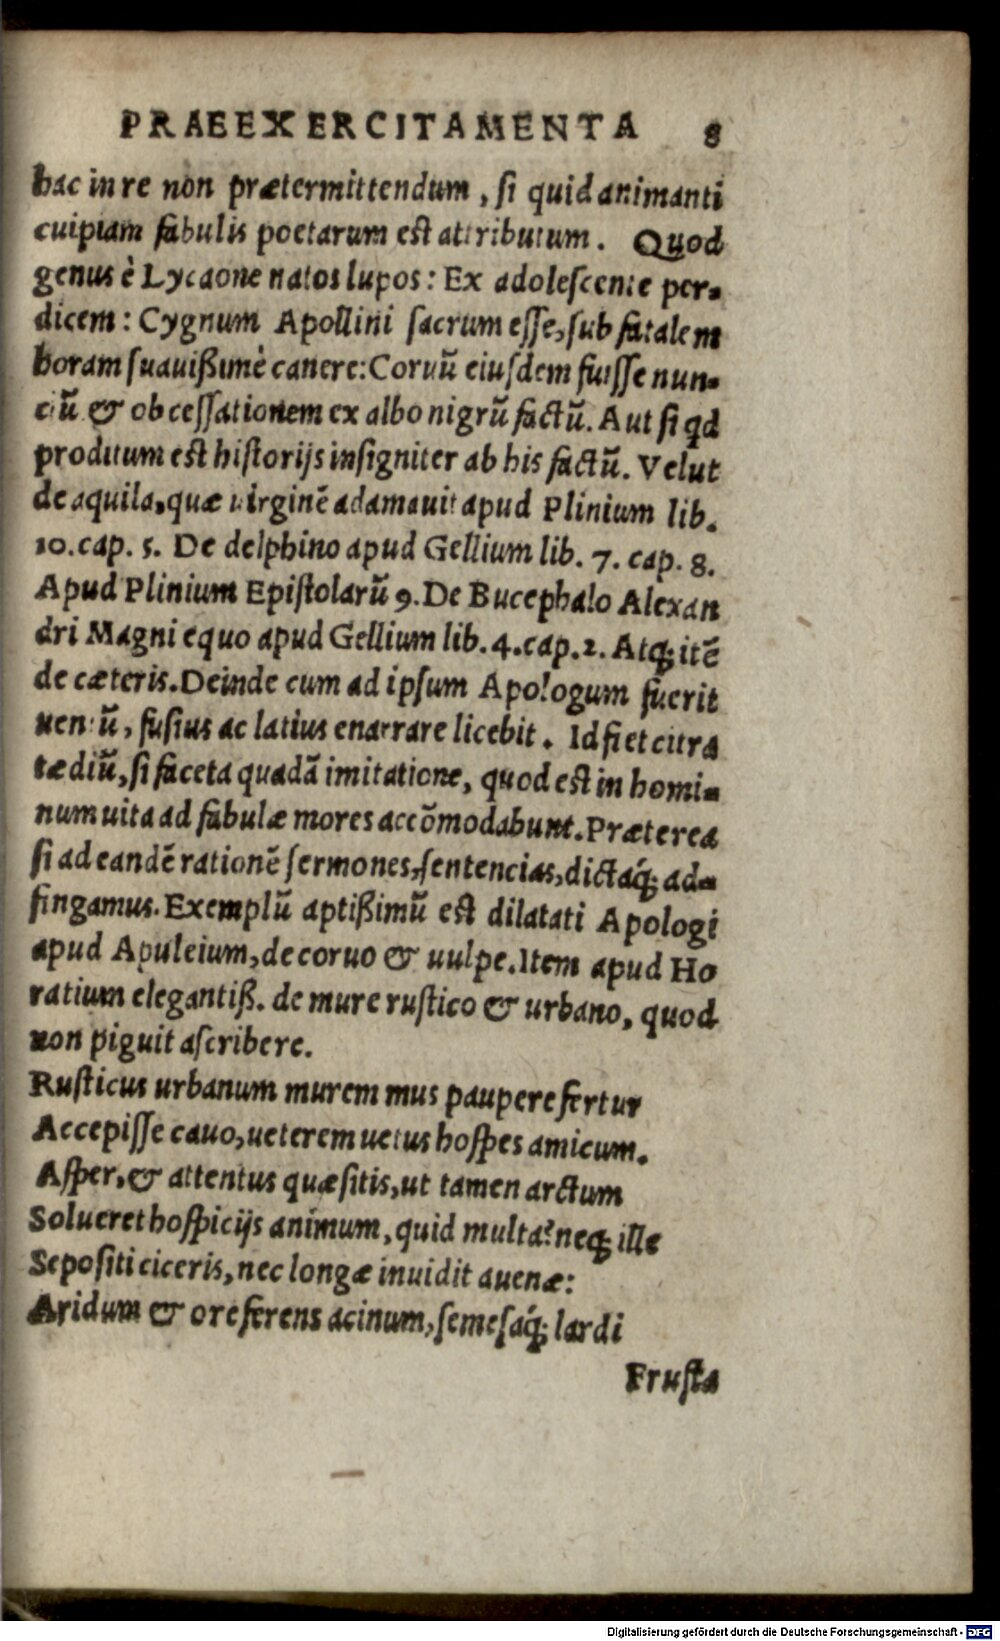 PRAEEXERCITAMENTA 8
hac in re non prætermittendum, ſi quid animanti
cuipiam fabulis poetarum est attributum. Quod
genus è Lycaone natos lupos: Ex adoleſcente per-
dicem: Cygnum Apollini ſacrum eſſe, ſub fatalem
horam ſuauißimè canere: Coruũ eiuſdem fuiſſe nun-
ciũ & ob ceſſationem ex albo nigrũ factũ. Aut ſi qd
proditum est hiſtorijs inſigniter ab his factũ. Velut
de aquila, quæ uirginẽ adamauit apud Plinium lib.
10. cap. 5. De delphino apud Gellium lib. 7. cap. 8.
Apud Plinium Epiſtolarũ 9. De Bucephalo Alexan
dri Magni equo apud Gellium lib. 4. cap. 2. Atq; itẽ
de cæteris. Deinde cum ad ipſum Apologum fuerit
uentũ, fuſius ac latius enarrare licebit. Id fiet citra
tædiũ, ſi faceta quadã imitatione, quod est in homi-
num uita ad fabulæ mores accõmodabunt. Præterea
ſi ad eandẽ rationẽ ſermones, ſentencias, dictaq́; ad-
fingamus. Exemplũ aptißimũ est dilatati Apologi
apud Apuleium, de coruo & uulpe. Item apud Ho
ratium elegantiß. de mure ruſtico & urbano, quod
non piguit aſcribere.
Ruſticus urbanum murem mus paupere fertur
Accepiſſe cauo, ueterem uetus hoſpes amicum.
Aſper, & attentus quæſitis, ut tamen arctum
Solueret hoſpicijs animum, quid multa? neq; ille
Sepoſiti ciceris, nec longæ inuidit auenæ:
Aridum & ore ferens acinum, ſemeſaq́; lardi
Fruſta
Digitalisierung gefördert durch die Deutsche Forschungsgemeinschaft - DFG